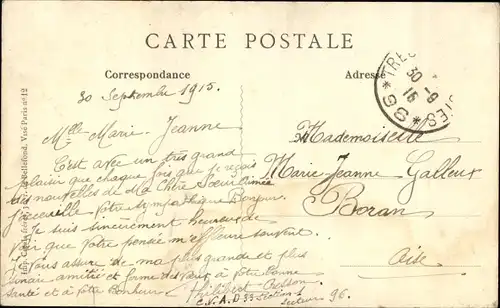 CARTE POSTALE
Correspondance
Adresse
30 Septembre 1915.
Mlle Marie-Jeanne
C'est avec un très grand
plaisir que chaque fois que je reçois
des nouvelles de Ma Chère Sœur Aimée
j'accueille votre sympathique Bonjour
Je suis sincèrement heureux de
voir que votre pensée m'effleure souvent.
Vous assure de ma plus grande et plus
amitié et forme des vœux à votre bonne
santé et à votre bonheur
Secteur 96.
Mademoiselle
Marie Jeanne Galleux
Boran
Oise
TRESOR POSTES
30-9
15
*96*
Vzé Paris n° 12